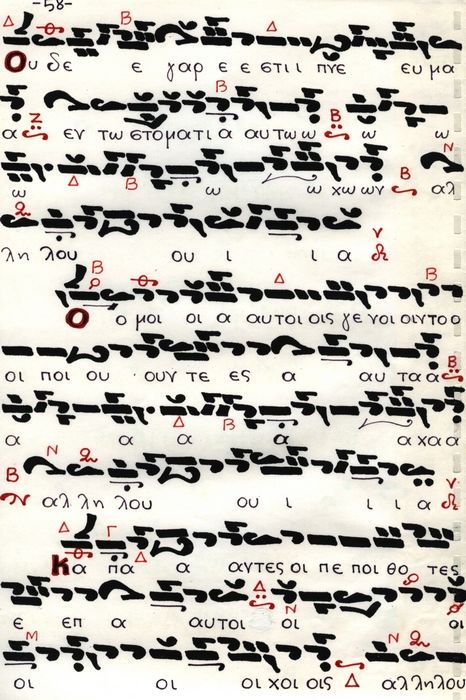 -58-
Ου δε ε γαρ ε ε στι ι πνε ευ μα
α εν τω στο ματι α αυ τω ω ω ω
ω ω ω χω ων αλ
λη λου ου ι ι α
Ο ο μοι οι α αυτοι οις γε νοι οιν το ο
οι ποι ου ουν τε ες α αυ τα α
α α α α α χα α
αλ λη λου ου ι ι ι α
Κα πα α αντες οι πε ποι θο τες
ε επ α αυτοι οι οι
οι οι οι χοι οις αλ λη λου